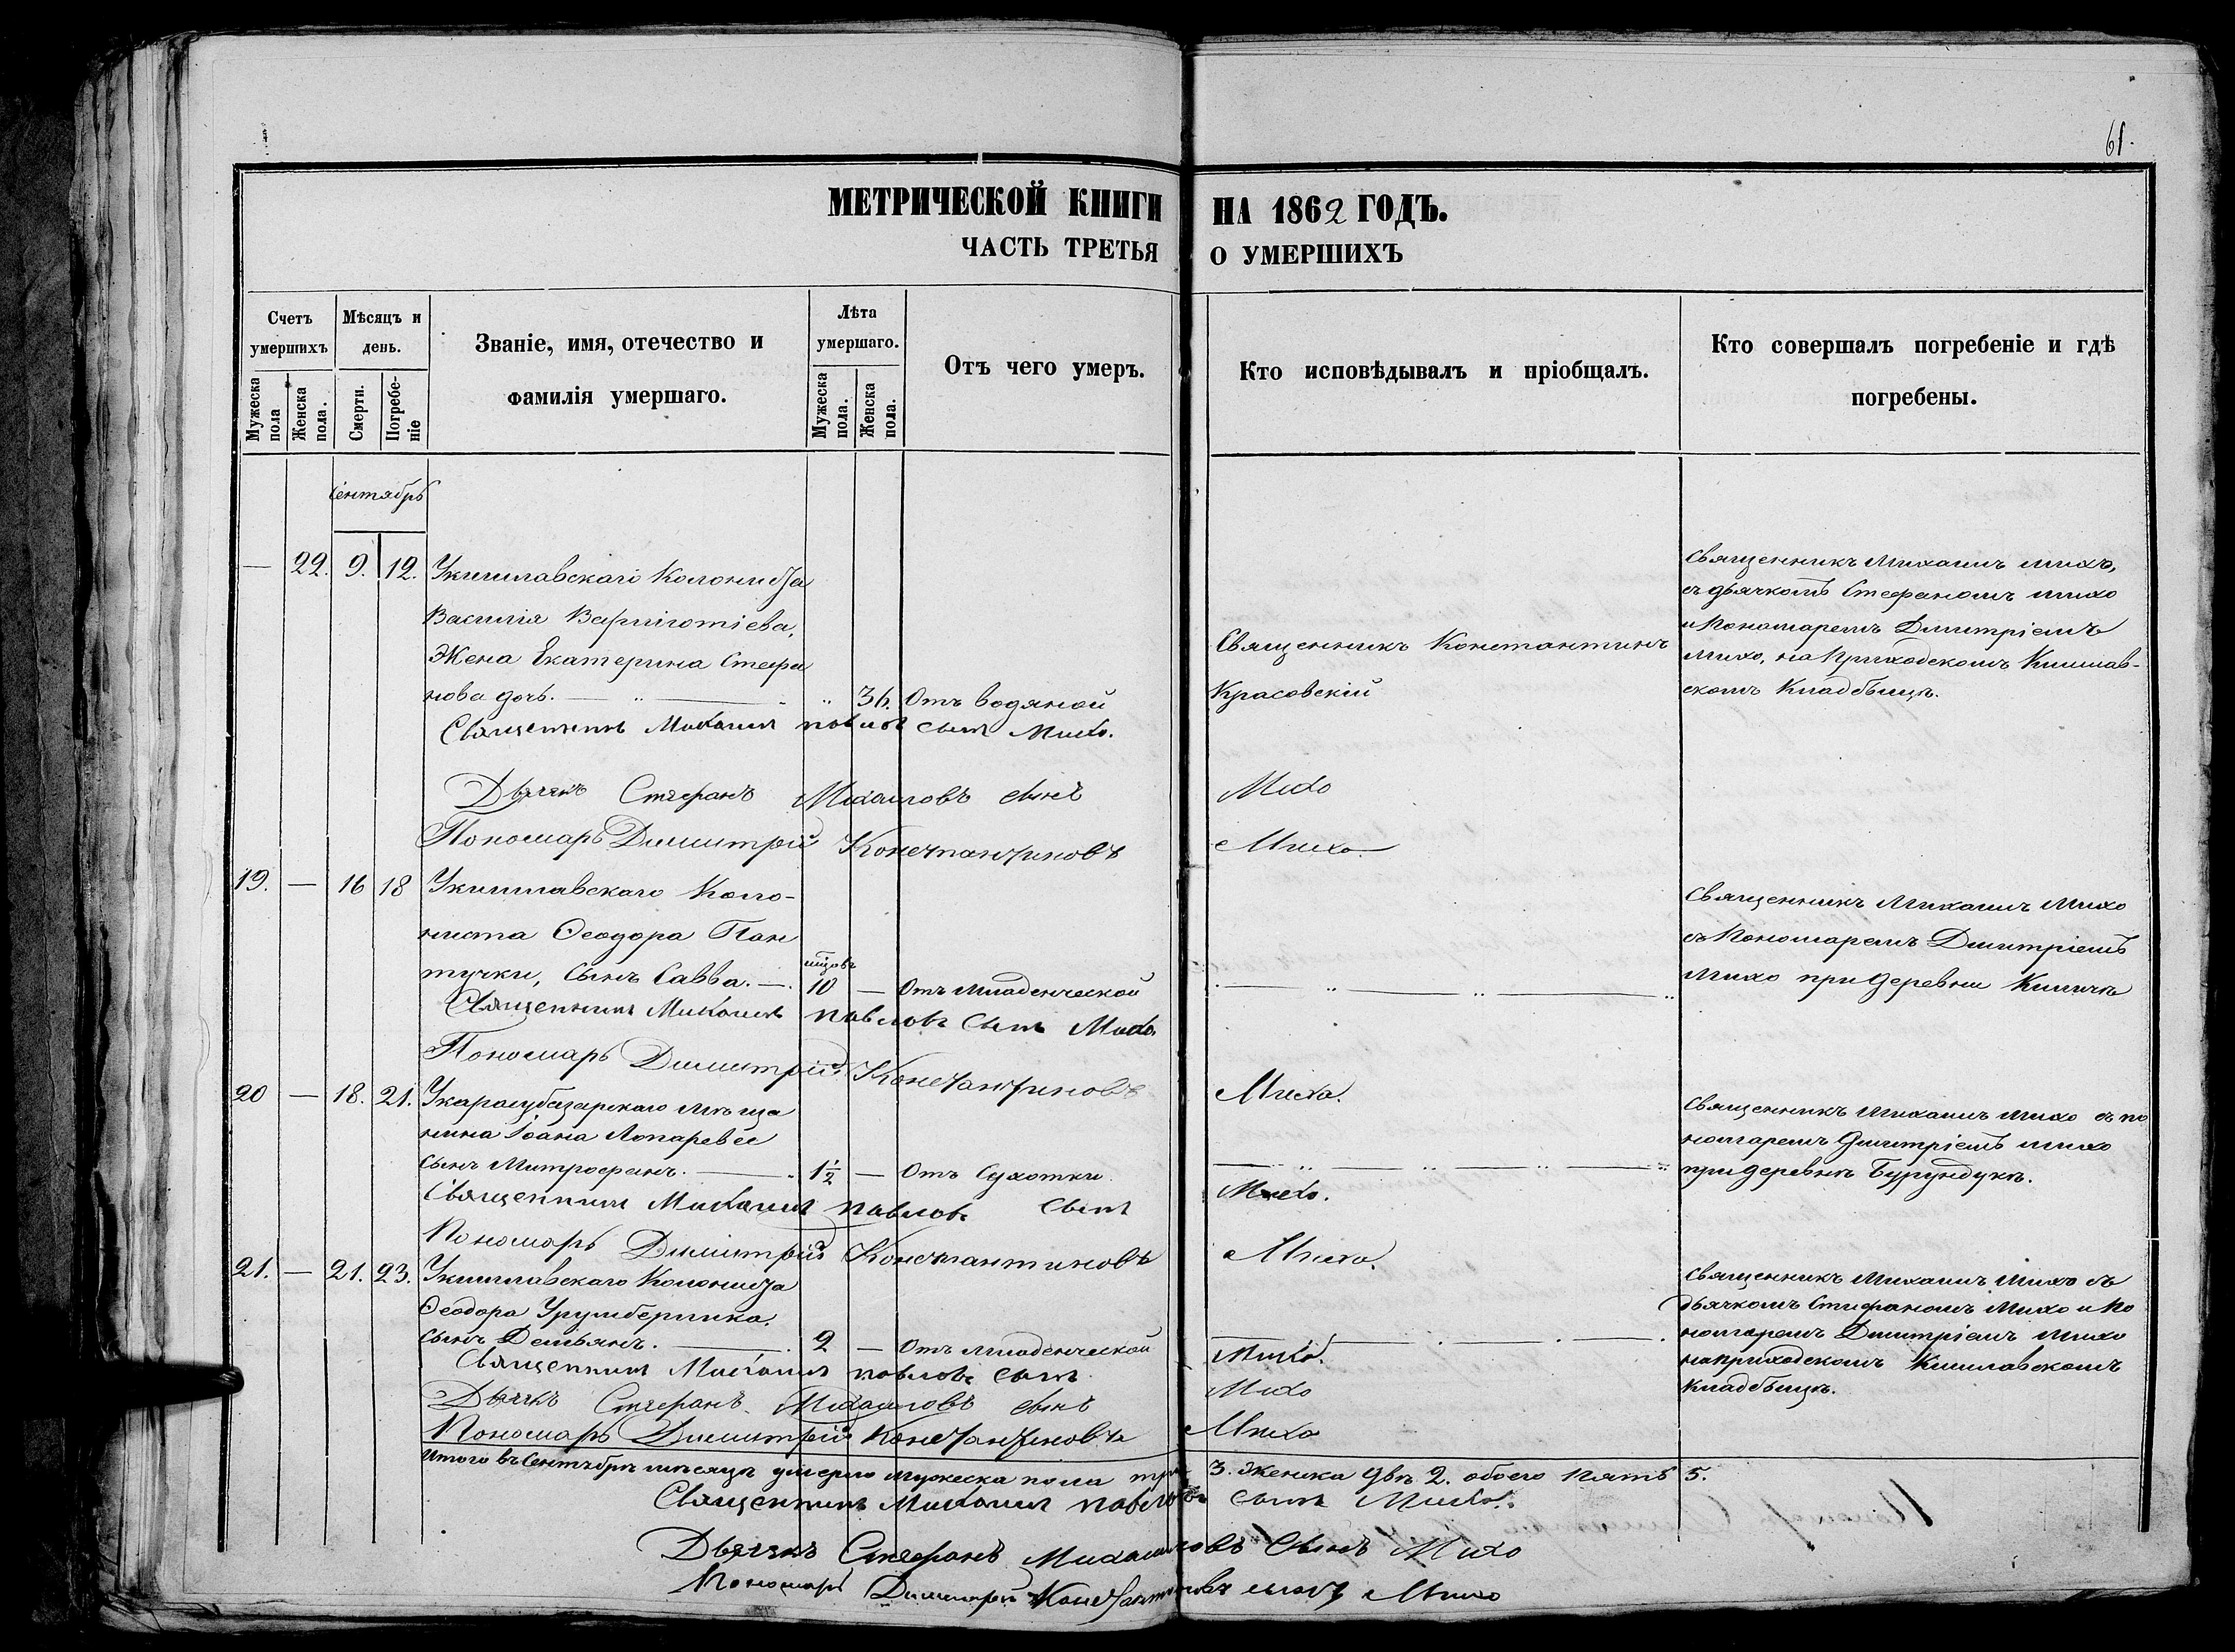 61.
МЕТРИЧЕСКОЙ КНИГИ НА 1862 ГОДЪ.
ЧАСТЬ ТРЕТЬЯ О УМЕРШИХЪ
Счетъ умершихъ
Мужеска пола
Женска пола.
Мѣсяцъ и день.
Смерти.
Погребеніе
Званіе, имя, отечество и фамилія умершаго.
Лѣта умершаго.
Мужеска пола.
Женска пола.
Отъ чего умеръ.
Кто исповѣдывалъ и пріобщалъ.
Кто совершалъ погребеніе и гдѣ погребены.
Сентябрь
— 22. 9. 12. Укишлавскаго Колониста
Василія
Жена Екатерина Стефа
нова дочь. — 36. Отъ водяной
Священникъ Константинъ
Красовскій
Священникъ Михаилъ Михо,
съ дьячкомъ Стефаномъ Михо
и Пономаремъ Димитріемъ
Михо, на Приходскомъ Кишлав-
скомъ Кладбищѣ.
Священникъ Михаилъ Павловъ сынъ Михо.
Дьячекъ Стефанъ Михаиловъ сынъ Михо
Пономарь Димитрій Константиновъ Михо
19. — 16 18 Укишлавскаго Коло-
ниста Ѳеодора Пан
тучки, Сынъ Савва. — 10 — Отъ младенческой
Священникъ Михаилъ Михо
съ Пономаремъ Димитріемъ
Михо при деревни
Священникъ Михаилъ Павловъ Сынъ Михо
Пономарь Димитрій Константиновъ Михо.
20 — 18. 21. Укарасубазарскаго мѣща
нина Іоана
сынъ Митрофанъ. — 1½ — Отъ Сухотки
Священникъ Михаилъ Михо съ по
номаремъ Димитріемъ Михо
при деревнѣ Бурундукъ.
Священникъ Михаилъ Павловъ Сынъ Михо.
Пономарь Димитрій Константиновъ Михо.
21. — 21. 23. Укишлавскаго Колониста
Ѳеодора
сынъ Демьянъ. — 2 — Отъ младенческой
Священникъ Михаилъ Михо съ
дьячкомъ Стефаномъ Михо и По
номаремъ Димитріемъ Михо
на приходскомъ Кишлавскомъ
Кладбищѣ.
Священникъ Михаилъ Павловъ Сынъ Михо.
Дьячекъ Стефанъ Михаиловъ сынъ Михо
Пономарь Димитрій Константиновъ Михо
Итого въ Сентябрѣ мѣсяцѣ умерло мужеска пола три 3. женска двѣ 2. обоего пять 5.
Священникъ Михаилъ Павловъ Сынъ Михо.
Дьячекъ Стефанъ Михаиловъ Сынъ Михо
Пономарь Димитрій Константиновъ сынъ Михо